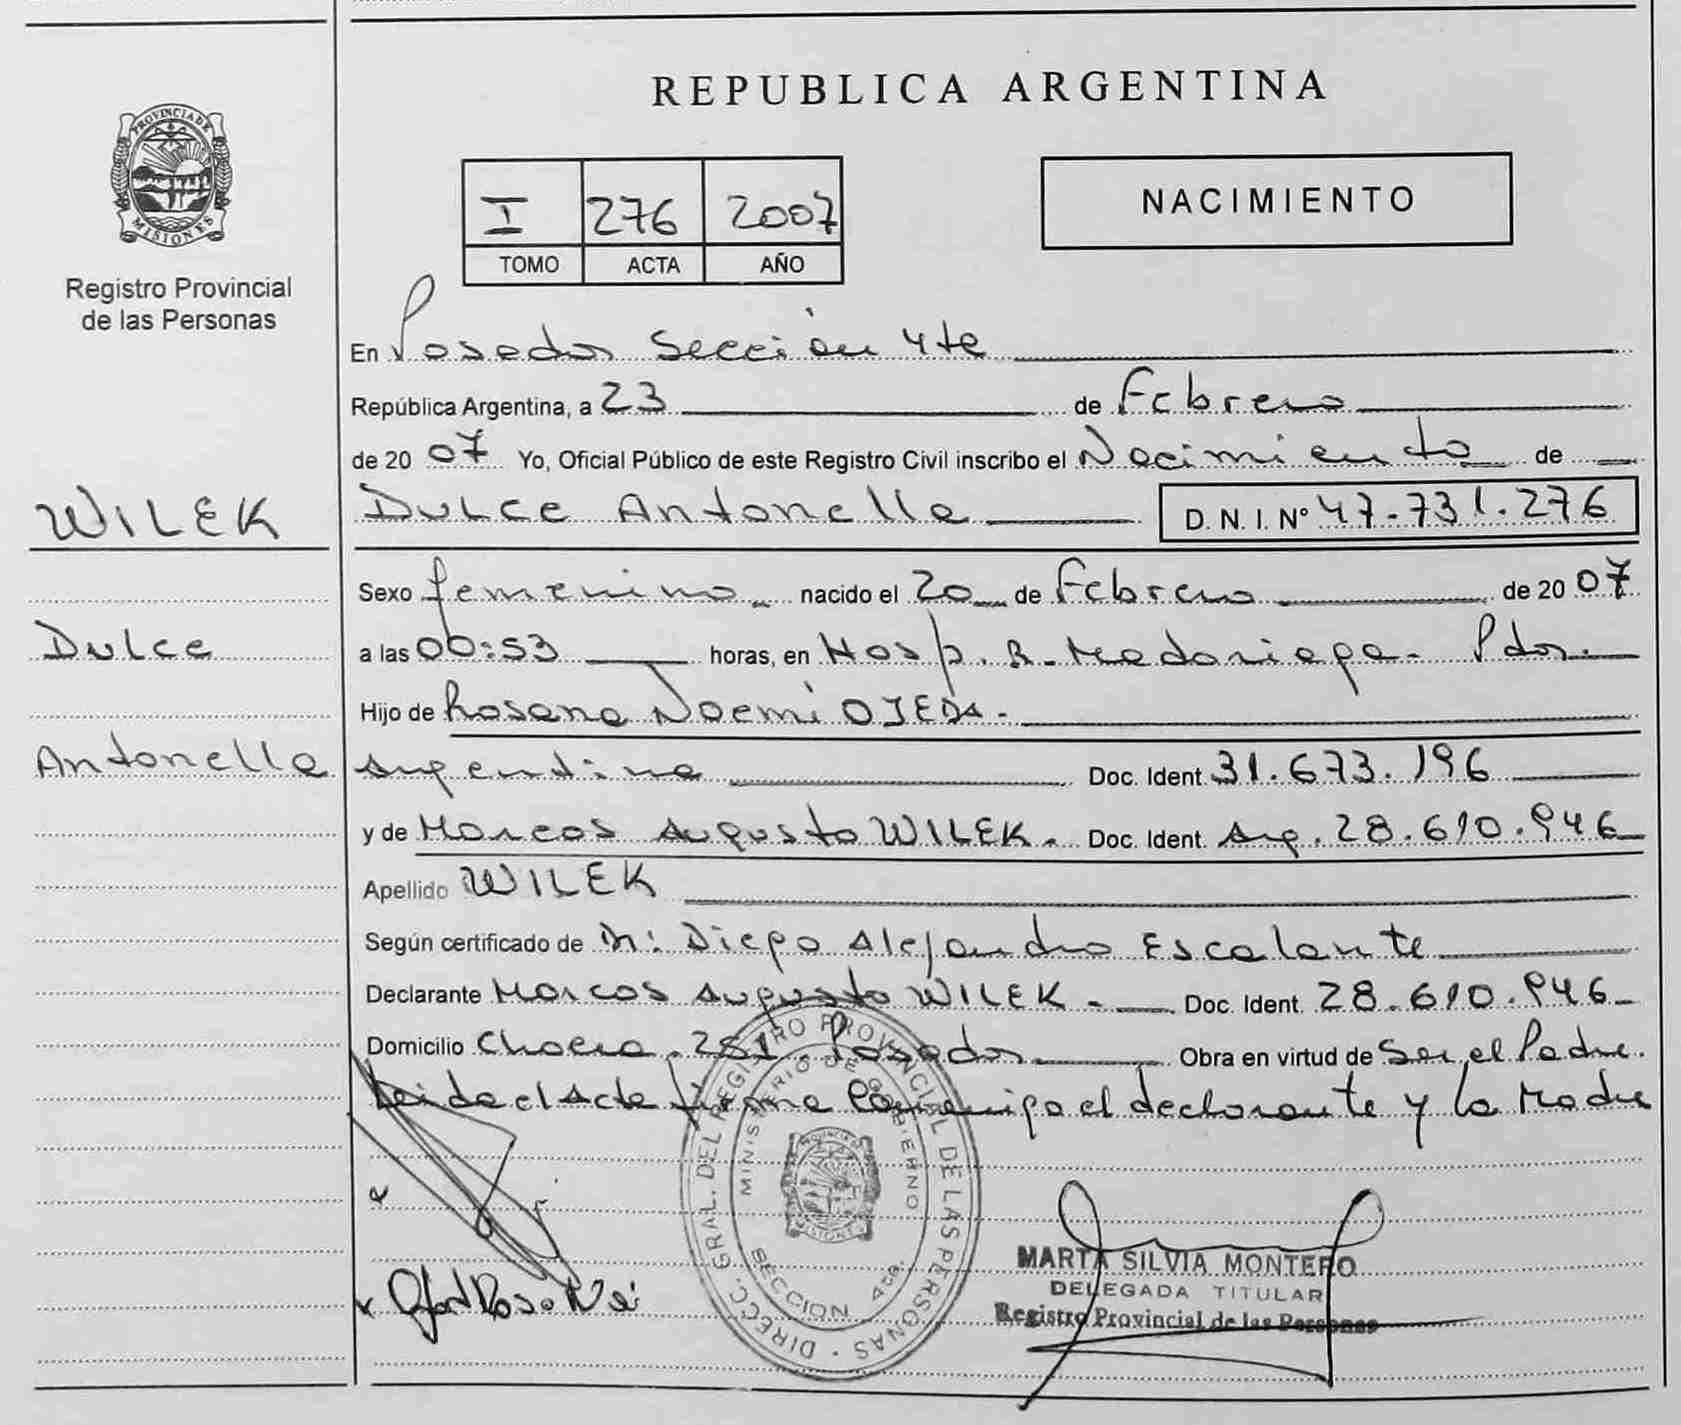 REPUBLICA ARGENTINA
PROVINCIA DE
MISIONES
Registro Provincial
de las Personas
I 276 2007
TOMO ACTA AÑO
NACIMIENTO
En Posadas Sección 4ta
República Argentina, a 23 de Febrero
de 2007 Yo, Oficial Público de este Registro Civil inscribo el Nacimiento de
WILEK
Dulce Antonella D. N. I. Nº 47.731.276
Sexo femenino nacido el 20 de Febrero de 2007
Dulce
a las 00:53 horas, en Hosp. R. Madariaga - Pdas.
Hijo de Rosana Noemi OJEDA.
Antonella
Argentina Doc. Ident. 31.673.196
y de Marcos Augusto WILEK. Doc. Ident. Arg. 28.610.946
Apellido WILEK
Según certificado de Dr: Diego Alejandro Escalante
Declarante Marcos Augusto WILEK. Doc. Ident. 28.610.946
Domicilio Chacra. 281. Posadas Obra en virtud de Ser el Padre.
Leida el Acta firma Conmigo el declarante y la Madre
DIRECC. GRAL. DEL REGISTRO PROVINCIAL DE LAS PERSONAS
MINISTERIO DE GOBIERNO
PROVINCIA DE
MISIONES
SECCION 4ta.
MARTA SILVIA MONTERO
DELEGADA TITULAR
Registro Provincial de las Personas